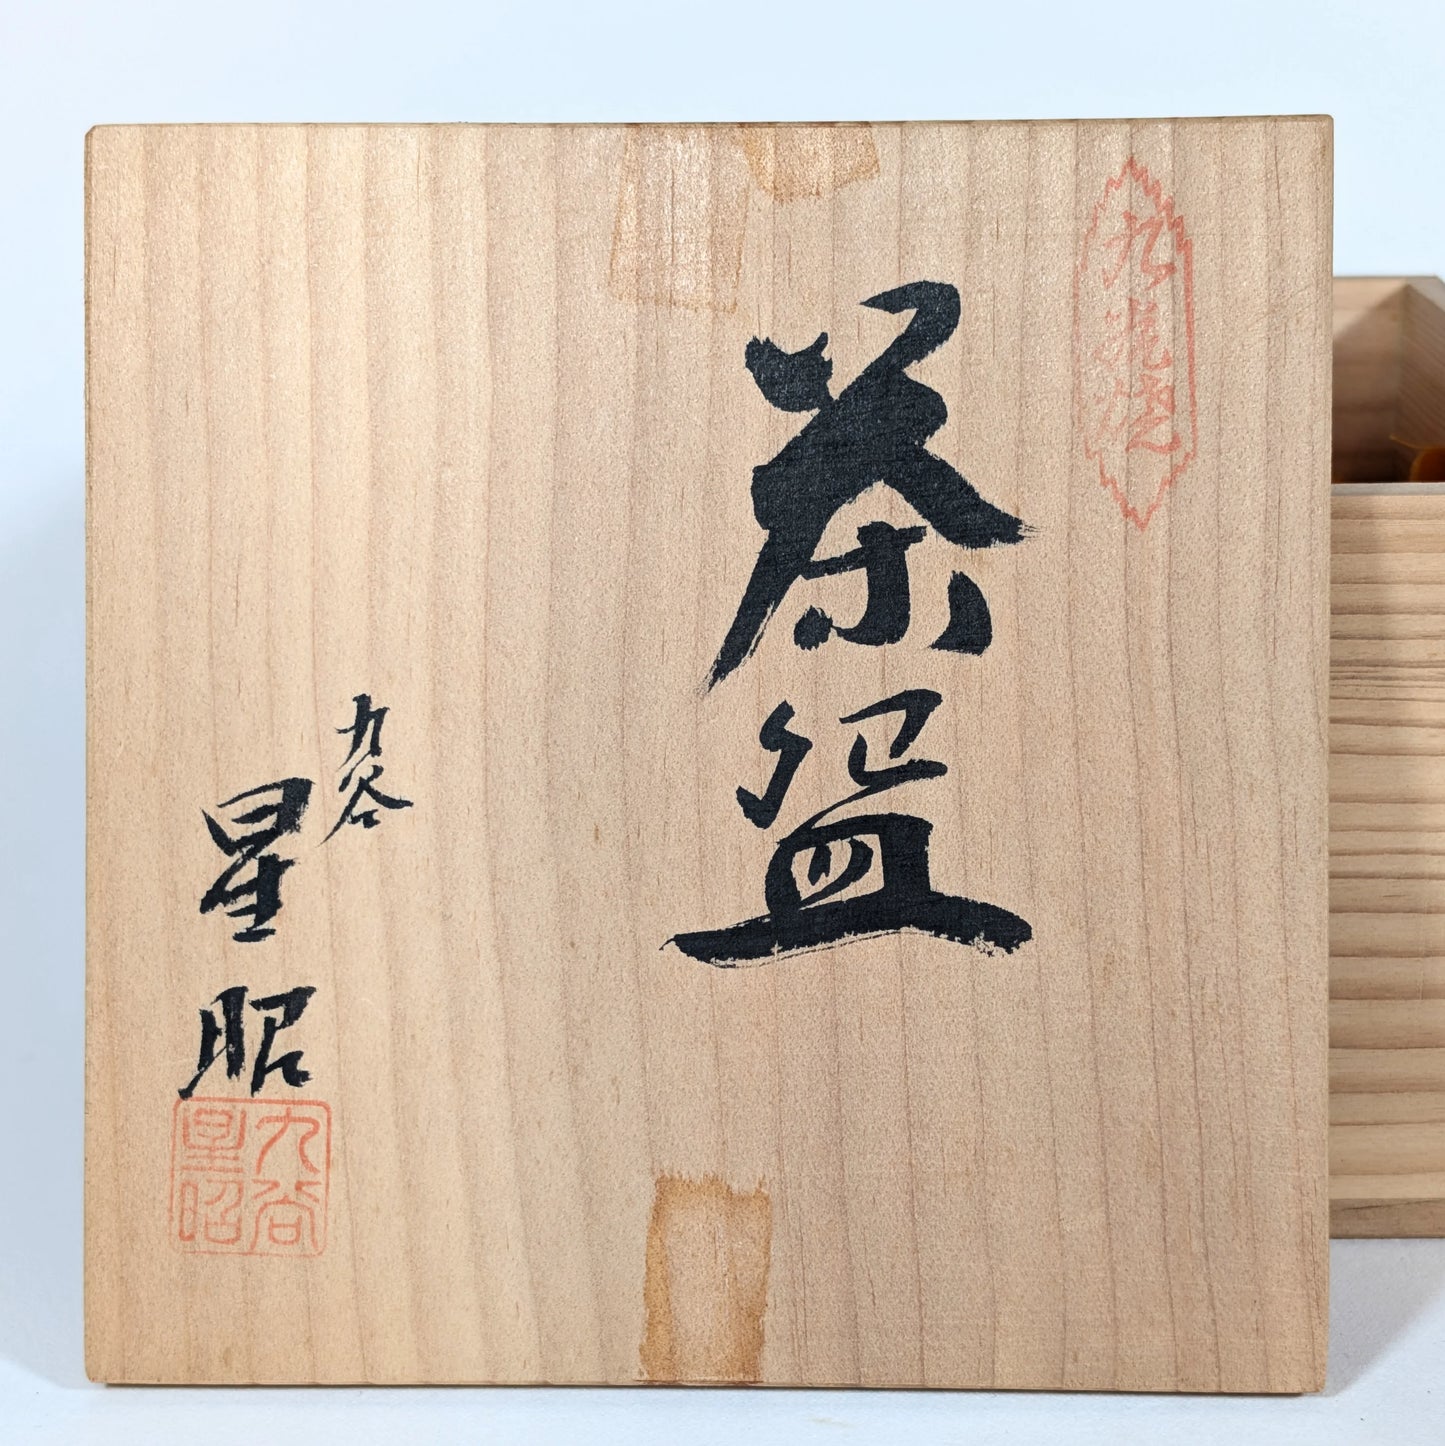 九 焼
茶盌
九谷
星昭
九谷
星昭